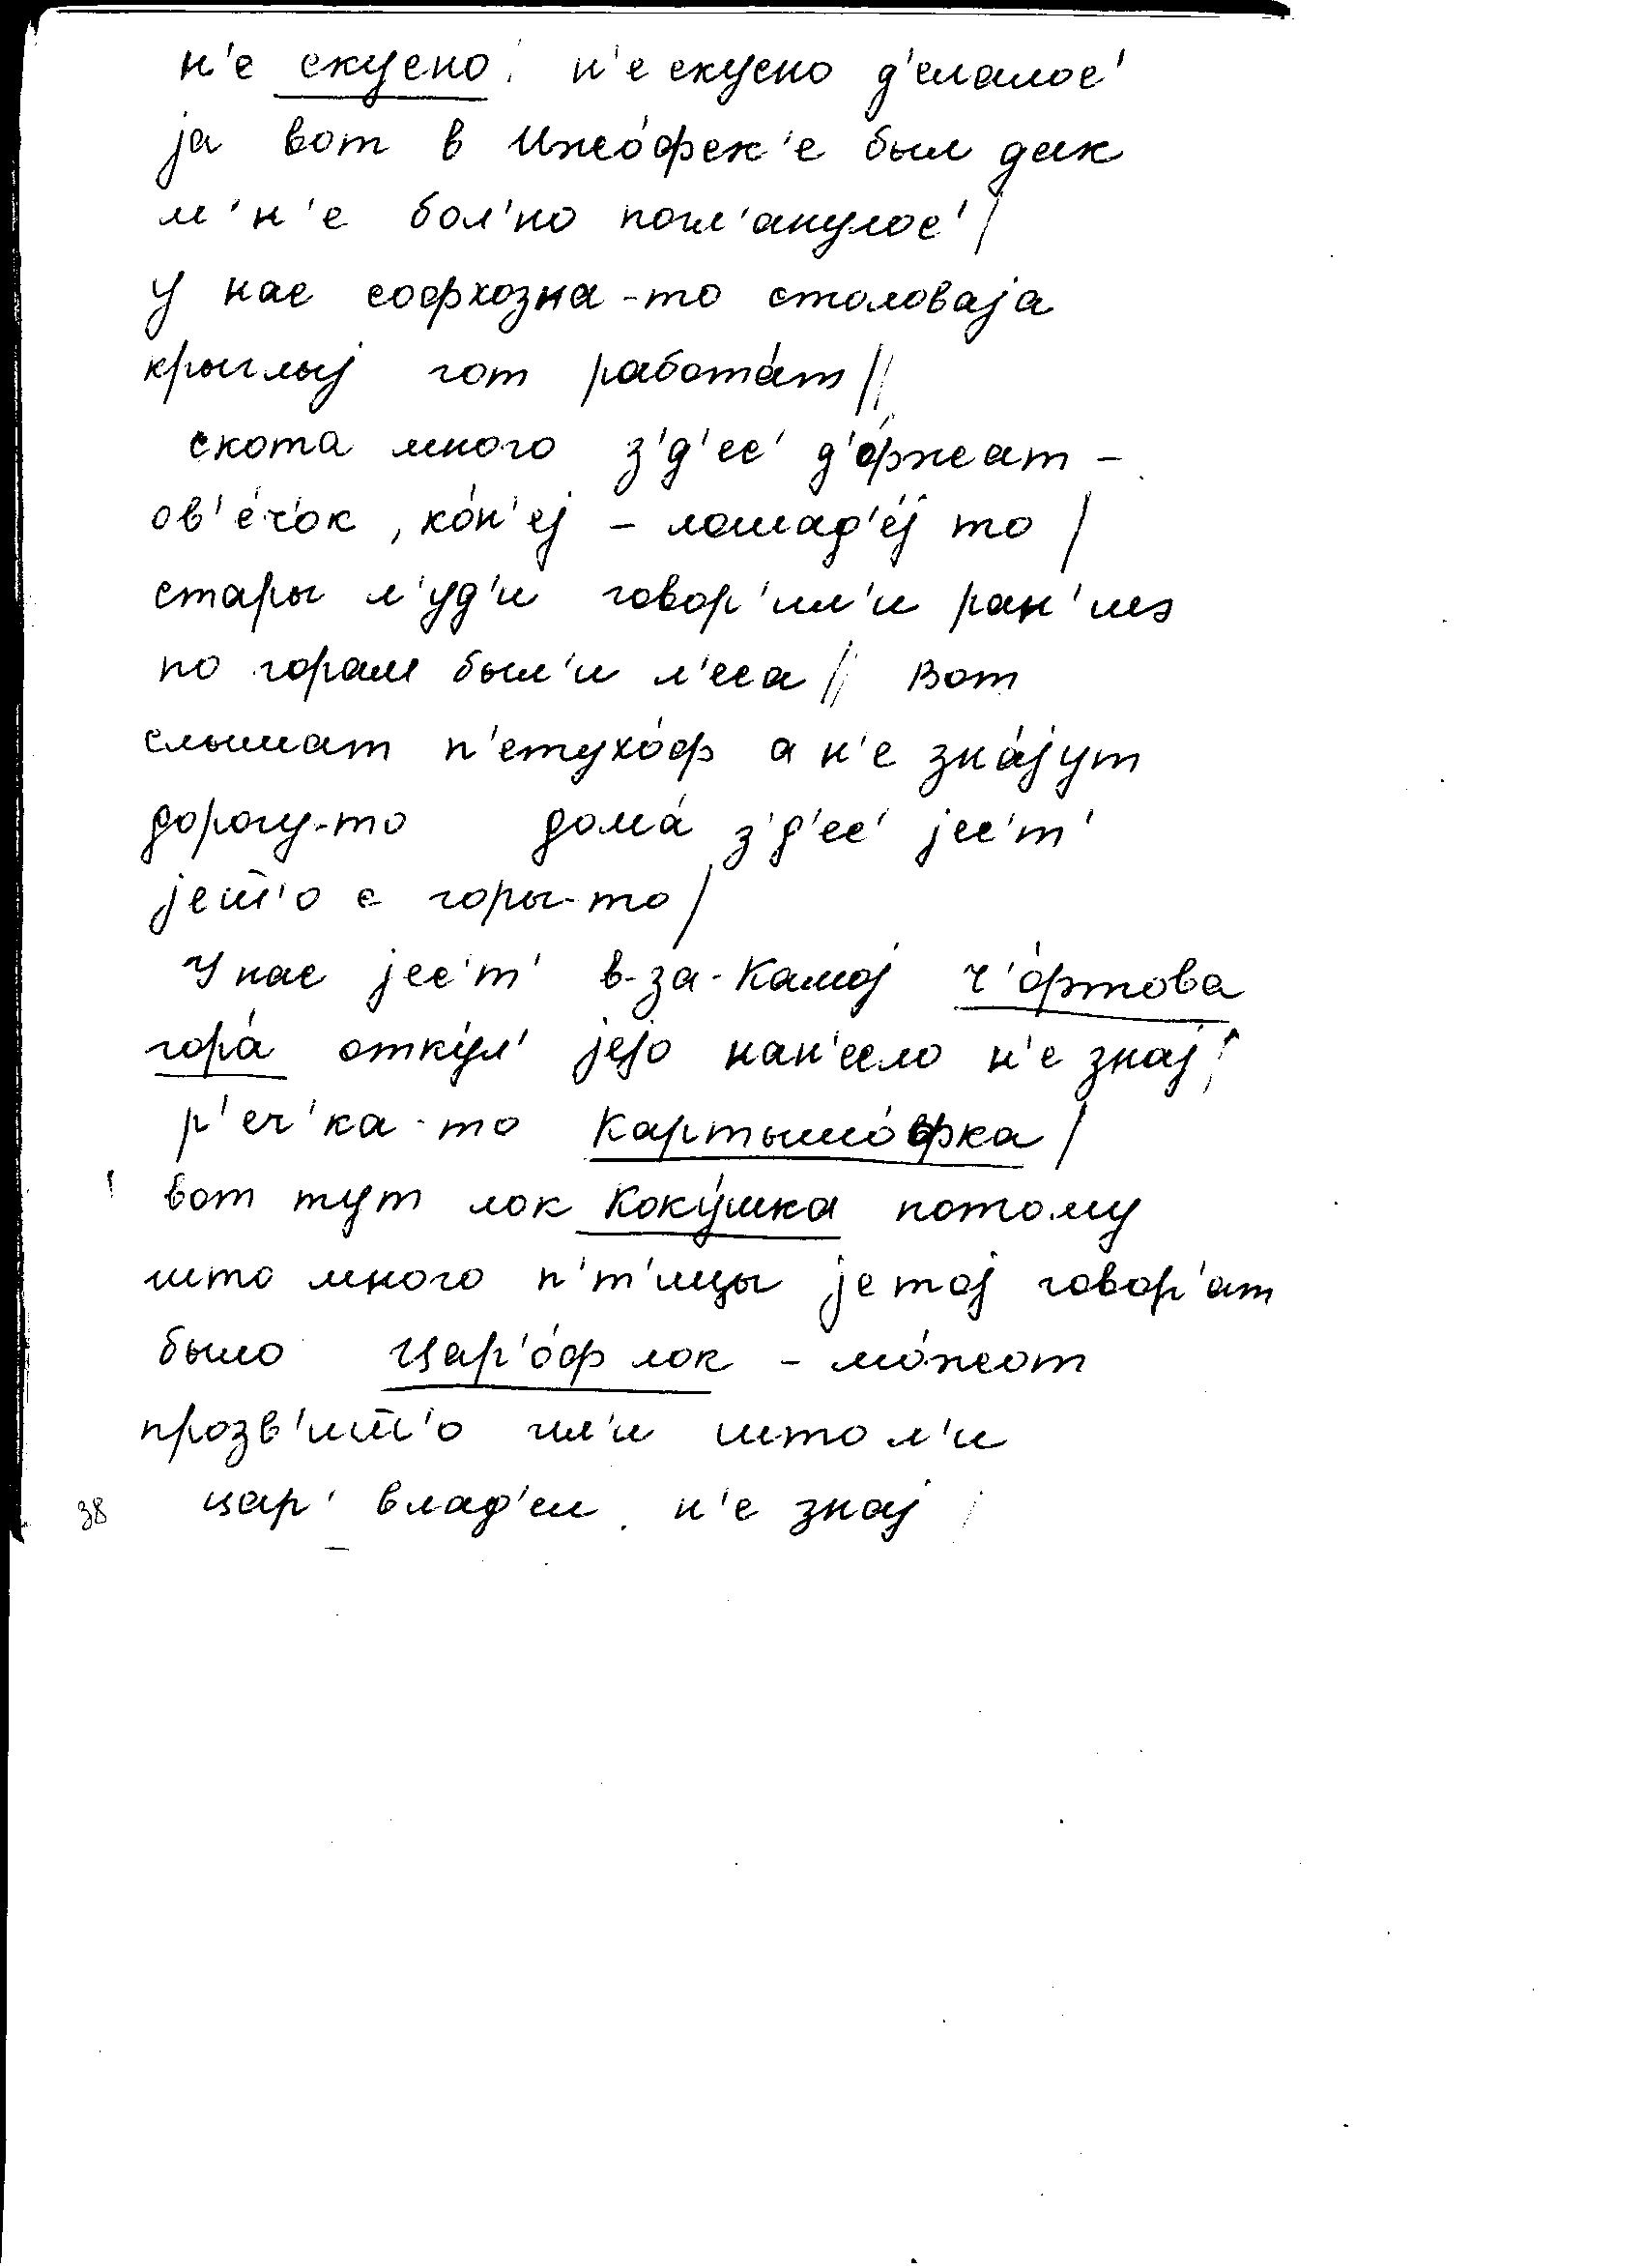 н'е скусно / н'е скусно д'елалос'
jа вот в Ижо́фск'е был дак
м'н'е бол'но погл'анулос' /
у нас софхозна-то столоваjа
круглыj гот рабо́тат //
скота много з'д'ес' д'о́ржат –
ов'е́ч'ок, ко́н'еj – лошад'е́j то /
стары л'уд'и говор'ил'и ран'шэ
по горам был'и л'еса // Вот
слышат п'етухо́ф а н'е зна́jут
дорогу-то дома́ з'д'ес' jес'т'
jешт'о с горы-то /
У нас jес'т' в-за-Камоj ч'о́ртова
гора́ отку́л' jеjо нан'есло н'е знаj /
р'еч'ка-то Картышо́фка /
вот тут лок Коку́шка потому
што много п'т'ицы jетоj говор'ат
было Цар'о́ф лок – мо́жот
прозв'ишт'о ил'и што л'и
38 цар' влад'ел н'е знаj /